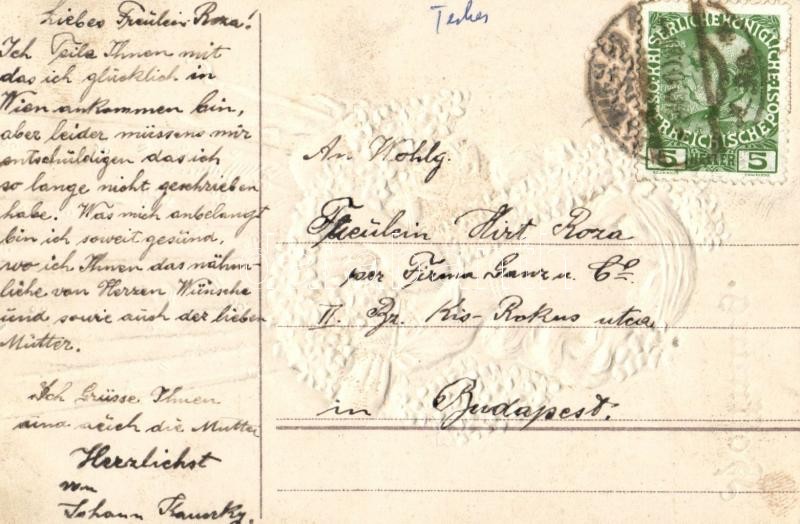 Liebes Freülein Roza!
Ich Teile Ihnen mit
das ich glücklich in
Wien ankommen bin,
aber leider müssens mir
entschüldigen das ich
so lange nicht geschrieben
habe. Was mich anbelangt
bin ich soweit gesünd,
wo ich Ihnen das nähm-
liche von Herzen Wünsche
ünd sowie auch der lieben
Mütter.
Ich Grüsse Ihnen
und auch die Mutter
Herzlichst
von
Johann
An Wohlg.
Freülein Hirt Roza
per Firma Ganz u. Co.
II. Bz. Kis-Rokus utca
in Budapest.
5 HELLER 5